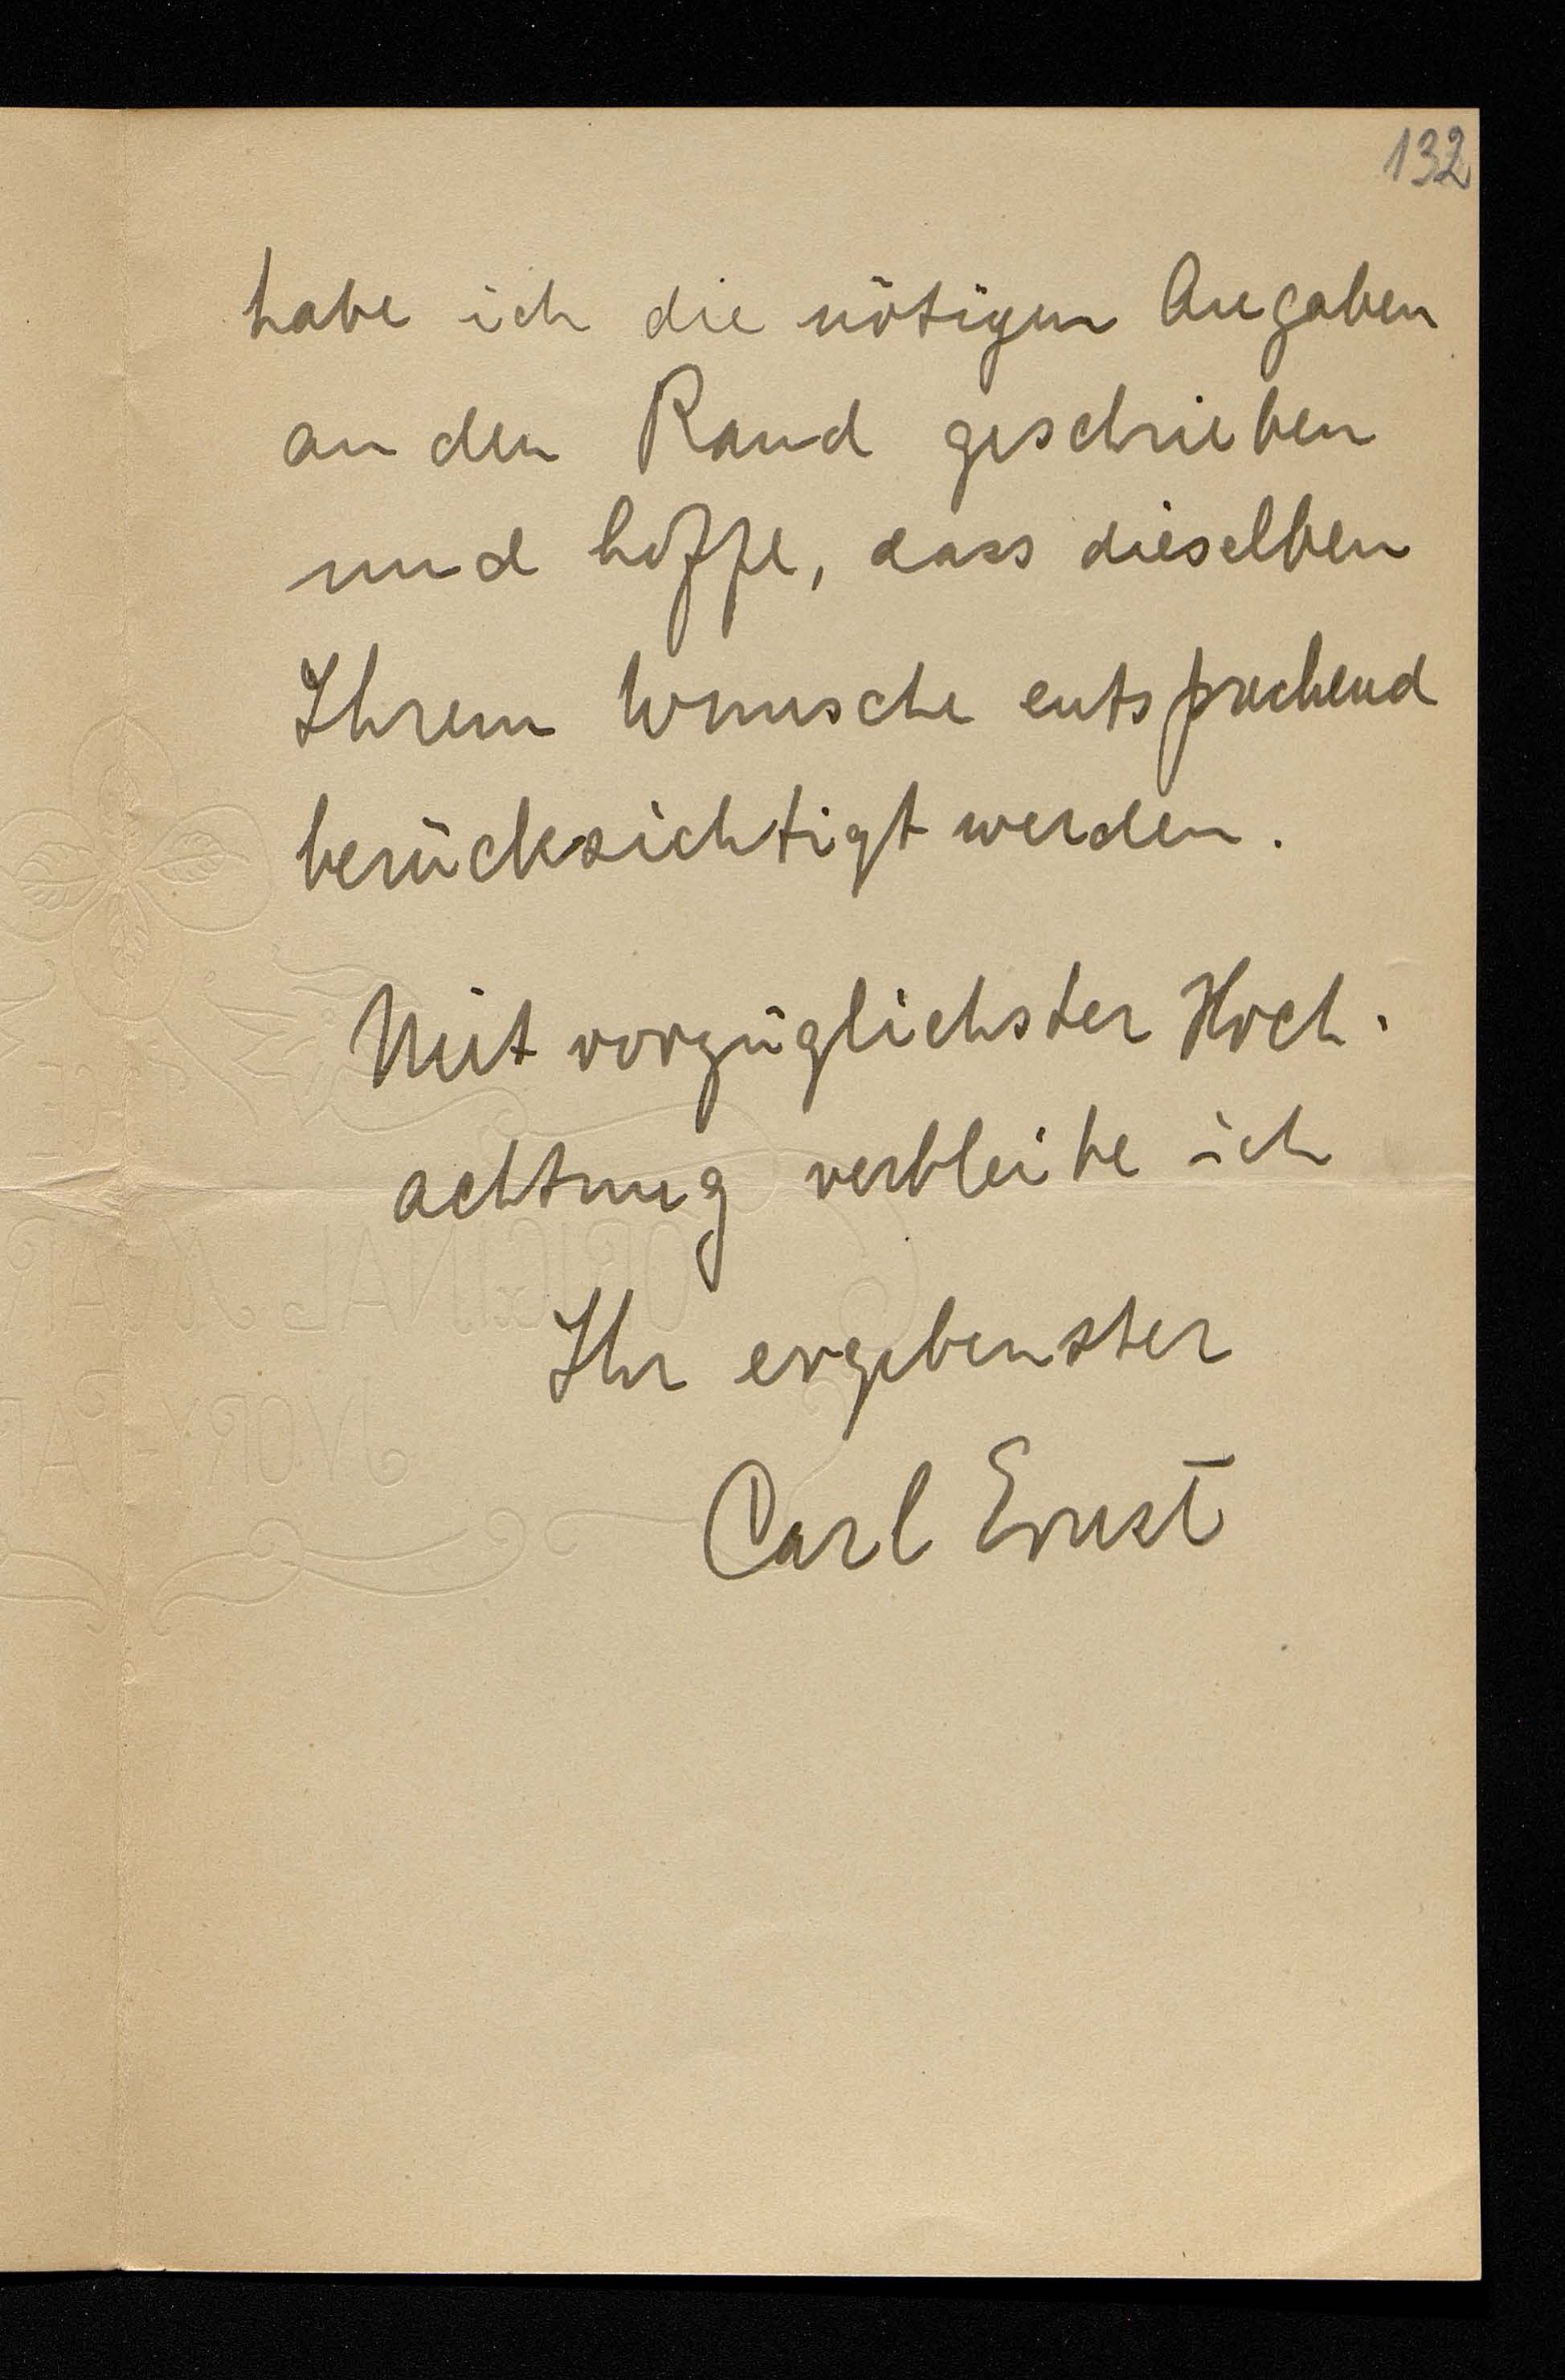 132
habe ich die nötigen Angaben
an den Rand geschrieben
und hoffe, dass dieselben
Ihrem Wunsche entsprechend
berücksichtigt werden.
Mit vorzüglichster Hoch-
achtung verbleibe ich
Ihr ergebenster
Carl Ernst
ORIGINAL
IVORY